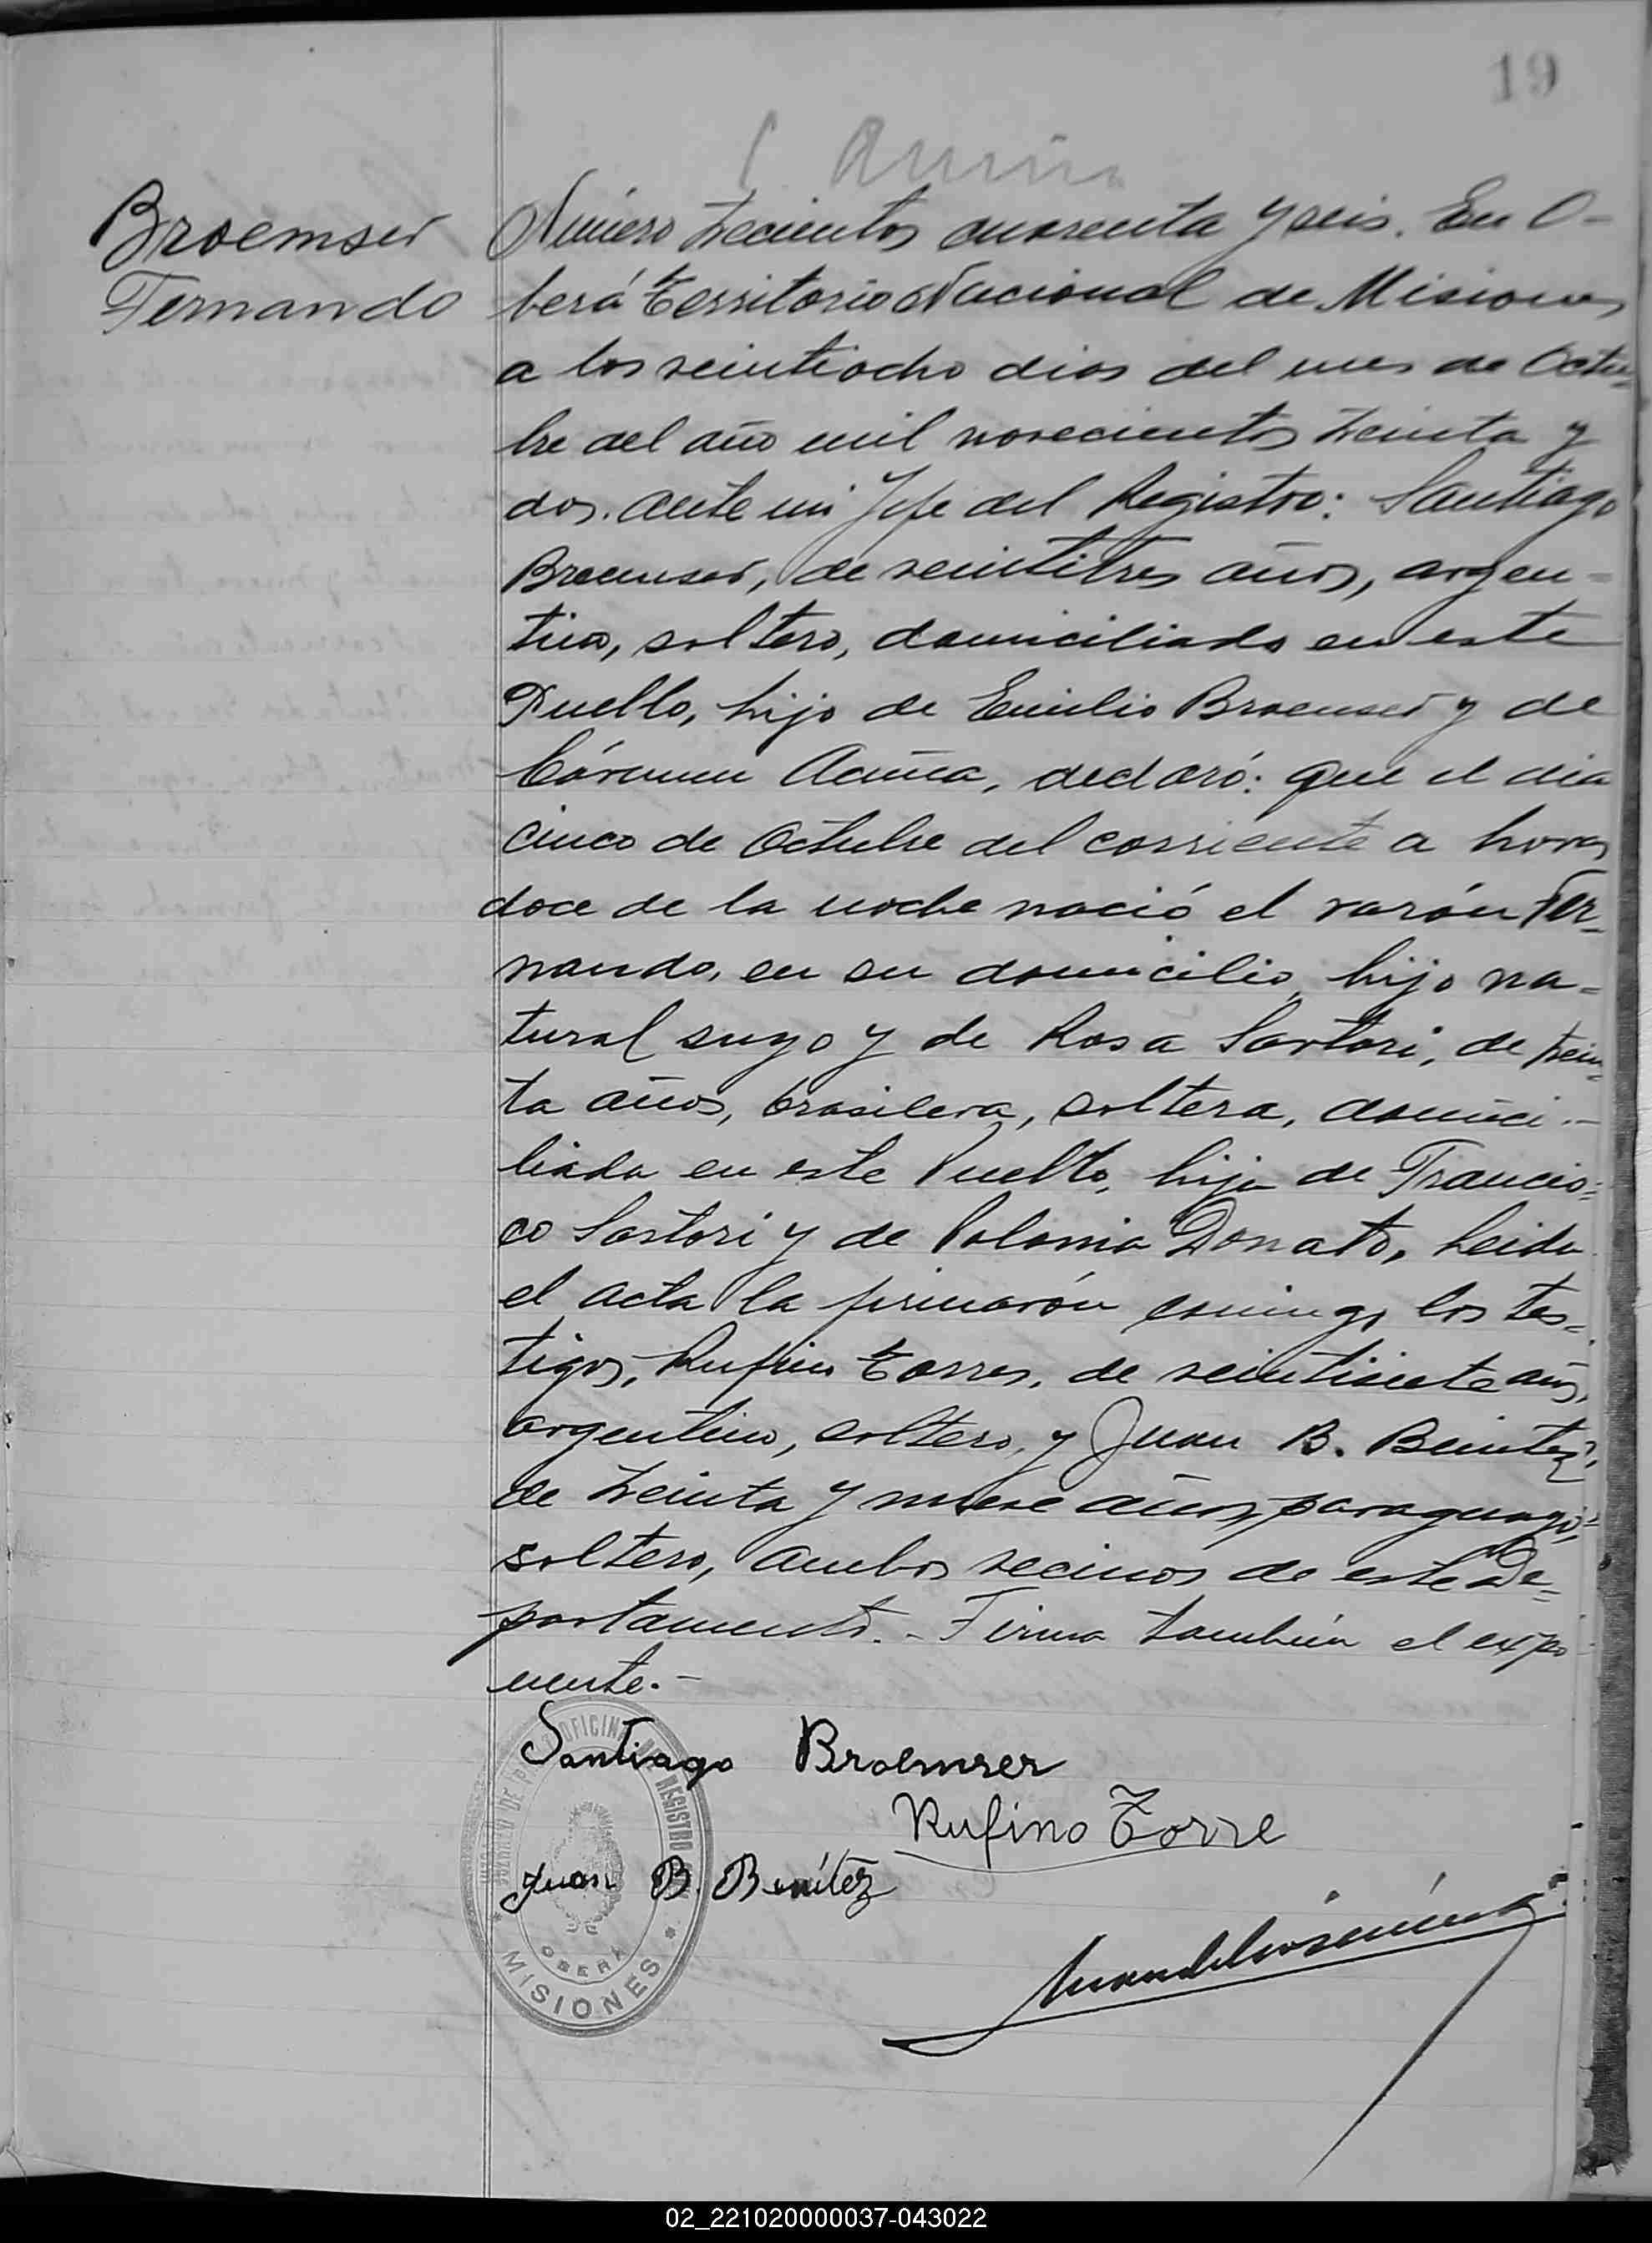 19
Broemser
Fernando
Número trecientos cuarenta y seis. En O-
berá Territorio Nacional de Misiones
a los veintiocho dias del mes de Octu-
bre del año mil novecientos treinta y
dos. ante mi Jefe del Registro: Santiago
Broemser, de veintitres años, argen-
tino, soltero, domiciliado en este
Pueblo, hijo de Emilio Broemser y de
Cármen Acuña, declaró: que el dia
cinco de Octubre del corriente a horas
doce de la noche nació el varón Fer-
nando, en su domicilio, hijo na-
tural suyo y de Rosa Sartori, de trein-
ta años, brasilera, soltera, domici-
liada en este Pueblo, hija de Francis-
co Sartori y de Polonia Donato, Leida
el acta la firmarón conmigo los tes-
tigos, Rufino Torres, de veintisiete años,
argentino, soltero, y Juan B. Benitez,
de treinta y nueve años, paraguayo,
soltero, ambos vecinos de este De-
partamento. - Firma también el expo-
nente. -
Santiago Broemser
Rufino Torre
Juan B. Benítez
OFICINA REGISTRO
OBERÁ
MISIONES
02_221020000037-043022